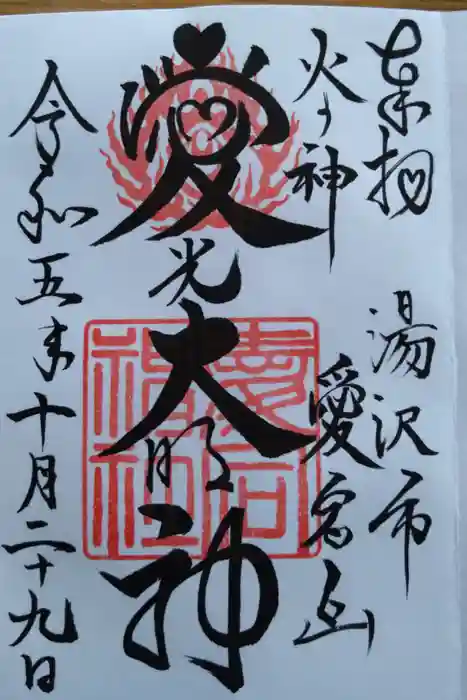 奉拝 湯沢市
火ヶ神 愛宕山
愛光大明神
愛宕神社
令和五年十月二十九日